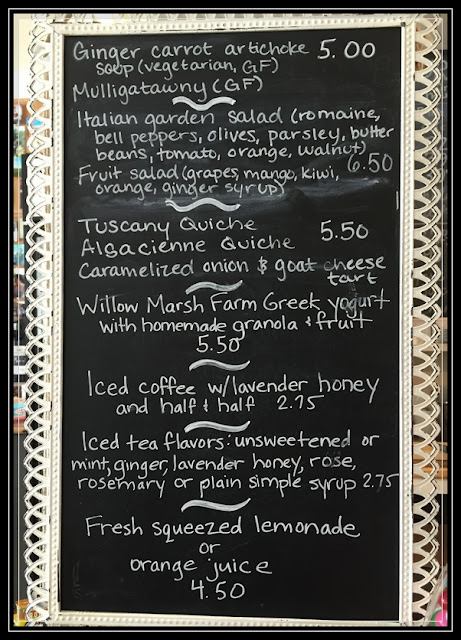 Ginger carrot artichoke 5.00
soup (vegetarian, GF)
Mulligatawny (GF)
Italian garden salad (romaine,
bell peppers, olives, parsley, butter
beans, tomato, orange, walnut)
Fruit salad (grapes, mango, kiwi, 6.50
orange, ginger syrup)
Tuscany Quiche 5.50
Alsacienne Quiche
Caramelized onion & goat cheese
tart
Willow Marsh Farm Greek yogurt
with homemade granola & fruit
5.50
Iced coffee w/lavender honey
and half & half 2.75
Iced tea flavors: unsweetened or
mint, ginger, lavender honey, rose,
rosemary or plain simple syrup 2.75
Fresh squeezed lemonade
or
orange juice
4.50